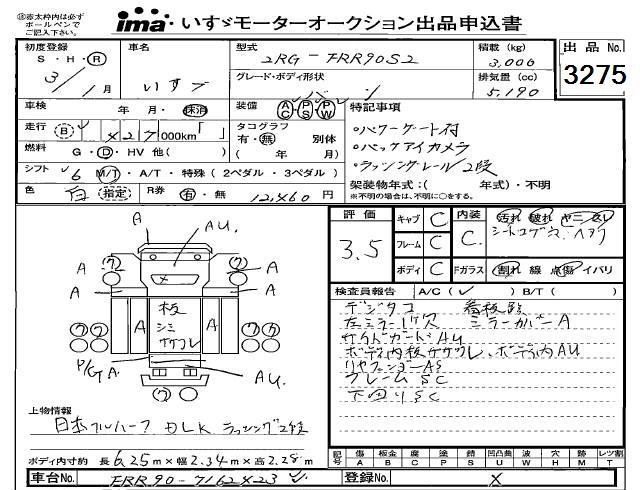 ※赤太枠内は必ず
ボールペンで
ご記入下さい。
ima いすゞモーターオークション出品申込書
初度登録
S・H・R
3/1月
車名
いすゞ
型式
2RG-FRR90S2
グレード・ボディ形状
バン
積載 (kg)
3,000
排気量 (cc)
5,190
出品No.
3275
車検 年 月・抹消
走行 B 427 000km「 」
燃料 G・D・HV 他( )
シフト 6 M/T・A/T・特殊 (2ペダル・3ペダル)
色 白 指定 R券 有・無 12,460 円
装備 AC PS PW
タコグラフ
有・無 別体
( 年 月)
特記事項
・パワーゲート付
・バックアイカメラ
・ラッシングレール2段
架装物年式:( 年式)・不明
※不明の場合は、不明に○をする。
評価
3.5
キャブ C
フレーム C
ボディ C
内装 C
汚れ 破れ ヤニ 灰し
シートコゲ穴、ヘタリ
Fガラス 割れ 線 点傷 イバリ
検査員報告 A/C(✓) B/T( )
デジタコ 看板跡
左ミラーL欠 ミラーカバーA
サイドガードAU
ボディ内板ササクレ、ボディ内AU
リヤフェンダーAS
フレームSC
下回りSC
A
AU
A
A
A
A
A
A
板
シミ
ササクレ
P/GT A
AU
上物情報
日本フルハーフ DLK ラッシング2段
ボディ内寸約 長 6.25m × 幅 2.34m × 高 2.28m
記号 傷A 板金B 腐C 塗P 錆S 凹凸曲U 波W 穴H 跡M レツ割T
車台No. FRR90-7162423
登録No. ×